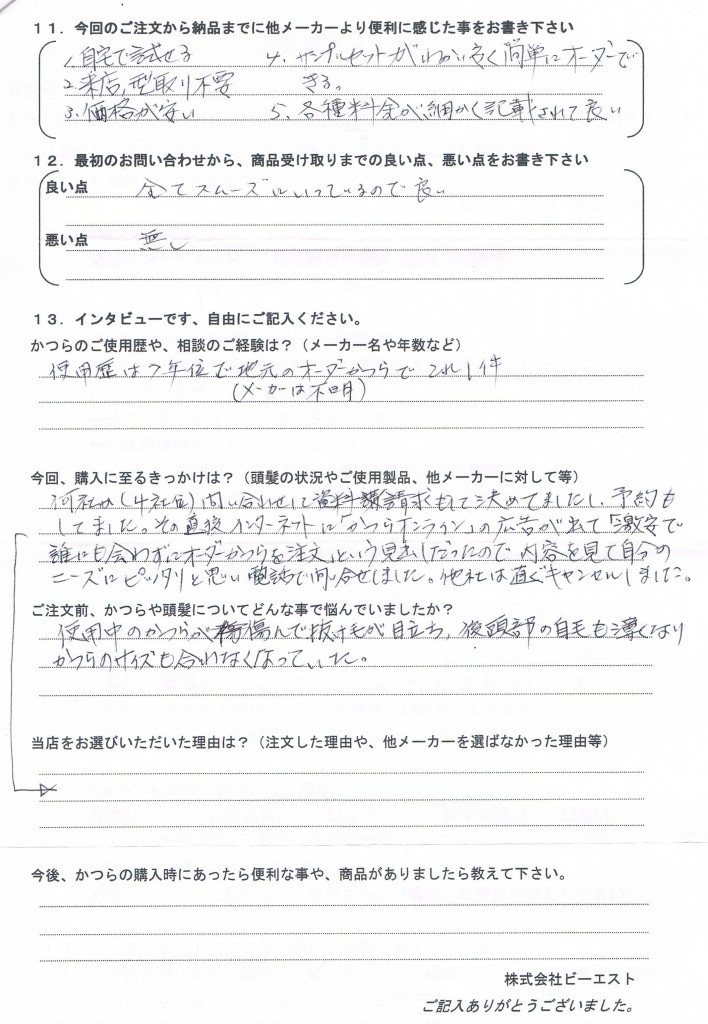 １１．今回のご注文から納品までに他メーカーより便利に感じた事をお書き下さい
1. 自宅で試せる
2. 来店，型取り不要
3. 価格が安い
4. サンプルセットがわかり易く簡単にオーダーで
きる。
5. 各種料金が細かく記載されて良い
１２．最初のお問い合わせから、商品受け取りまでの良い点、悪い点をお書き下さい
良い点 全てスムーズにいっているので良い
悪い点 無し
１３．インタビューです、自由にご記入ください。
かつらのご使用歴や、相談のご経験は？（メーカー名や年数など）
使用歴は7年位で地元のオーダーかつらでこれ1件
(メーカーは不明)
今回、購入に至るきっかけは？（頭髪の状況やご使用製品、他メーカーに対して等）
何社か(4社位)問い合わせして資料請求もして決めてましたし，予約も
してました。その直後インターネットに「かつらオンライン」の広告が出て「激安で
誰にも会わずにオーダーかつらを注文」という見出しだったので内容を見て自分の
ニーズにピッタリと思い電話で問い合せしました。他社は直ぐキャンセルしました。
ご注文前、かつらや頭髪についてどんな事で悩んでいましたか？
使用中のかつらが傷んで抜け毛が目立ち，後頭部の自毛も薄くなり
かつらのサイズも合わなくなっていた。
当店をお選びいただいた理由は？（注文した理由や、他メーカーを選ばなかった理由等）
今後、かつらの購入時にあったら便利な事や、商品がありましたら教えて下さい。
株式会社ビーエスト
ご記入ありがとうございました。